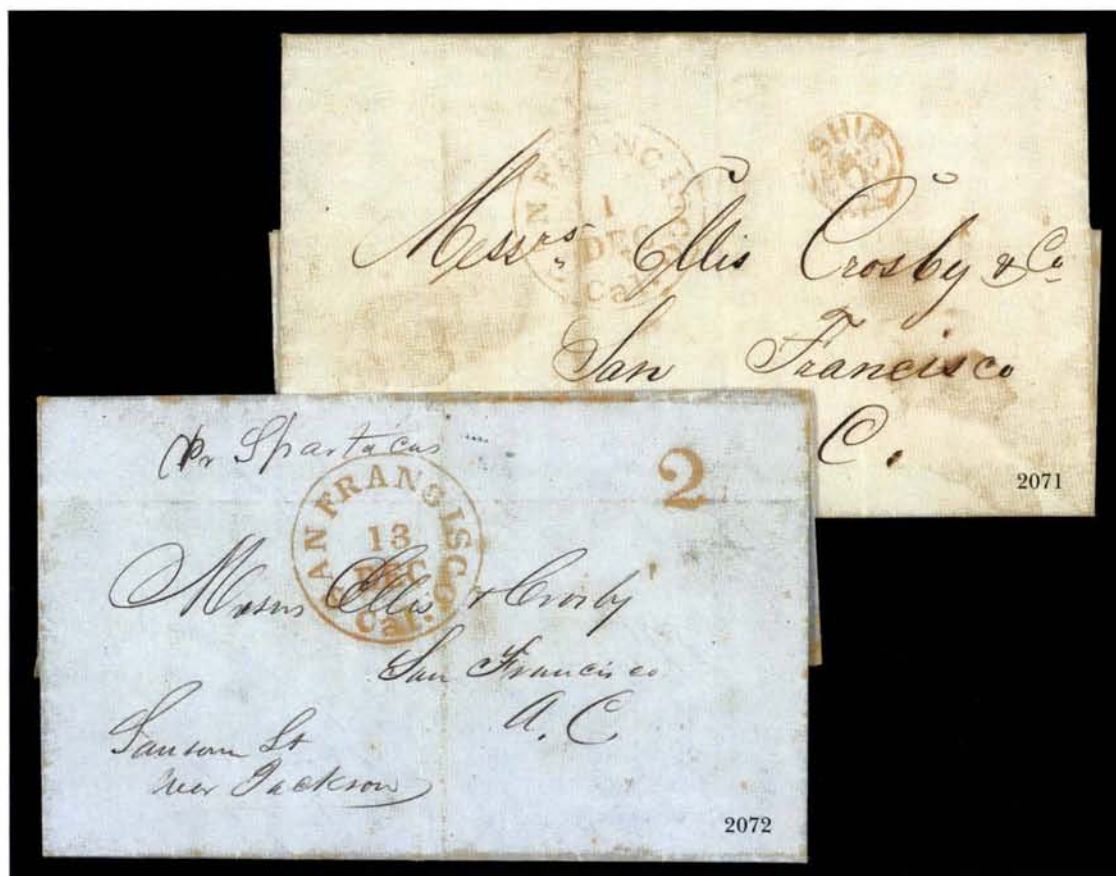 SHIP
SAN FRANCISCO
1
DEC
Cal.
Messrs Ellis Crosby & Co
San Francisco
C.
2071
Pr Spartacus
2
SAN FRANCISCO
13
DEC
Cal.
Messrs Ellis & Crosby
San Francisco
A. C
Sansom St
near Jackson
2072